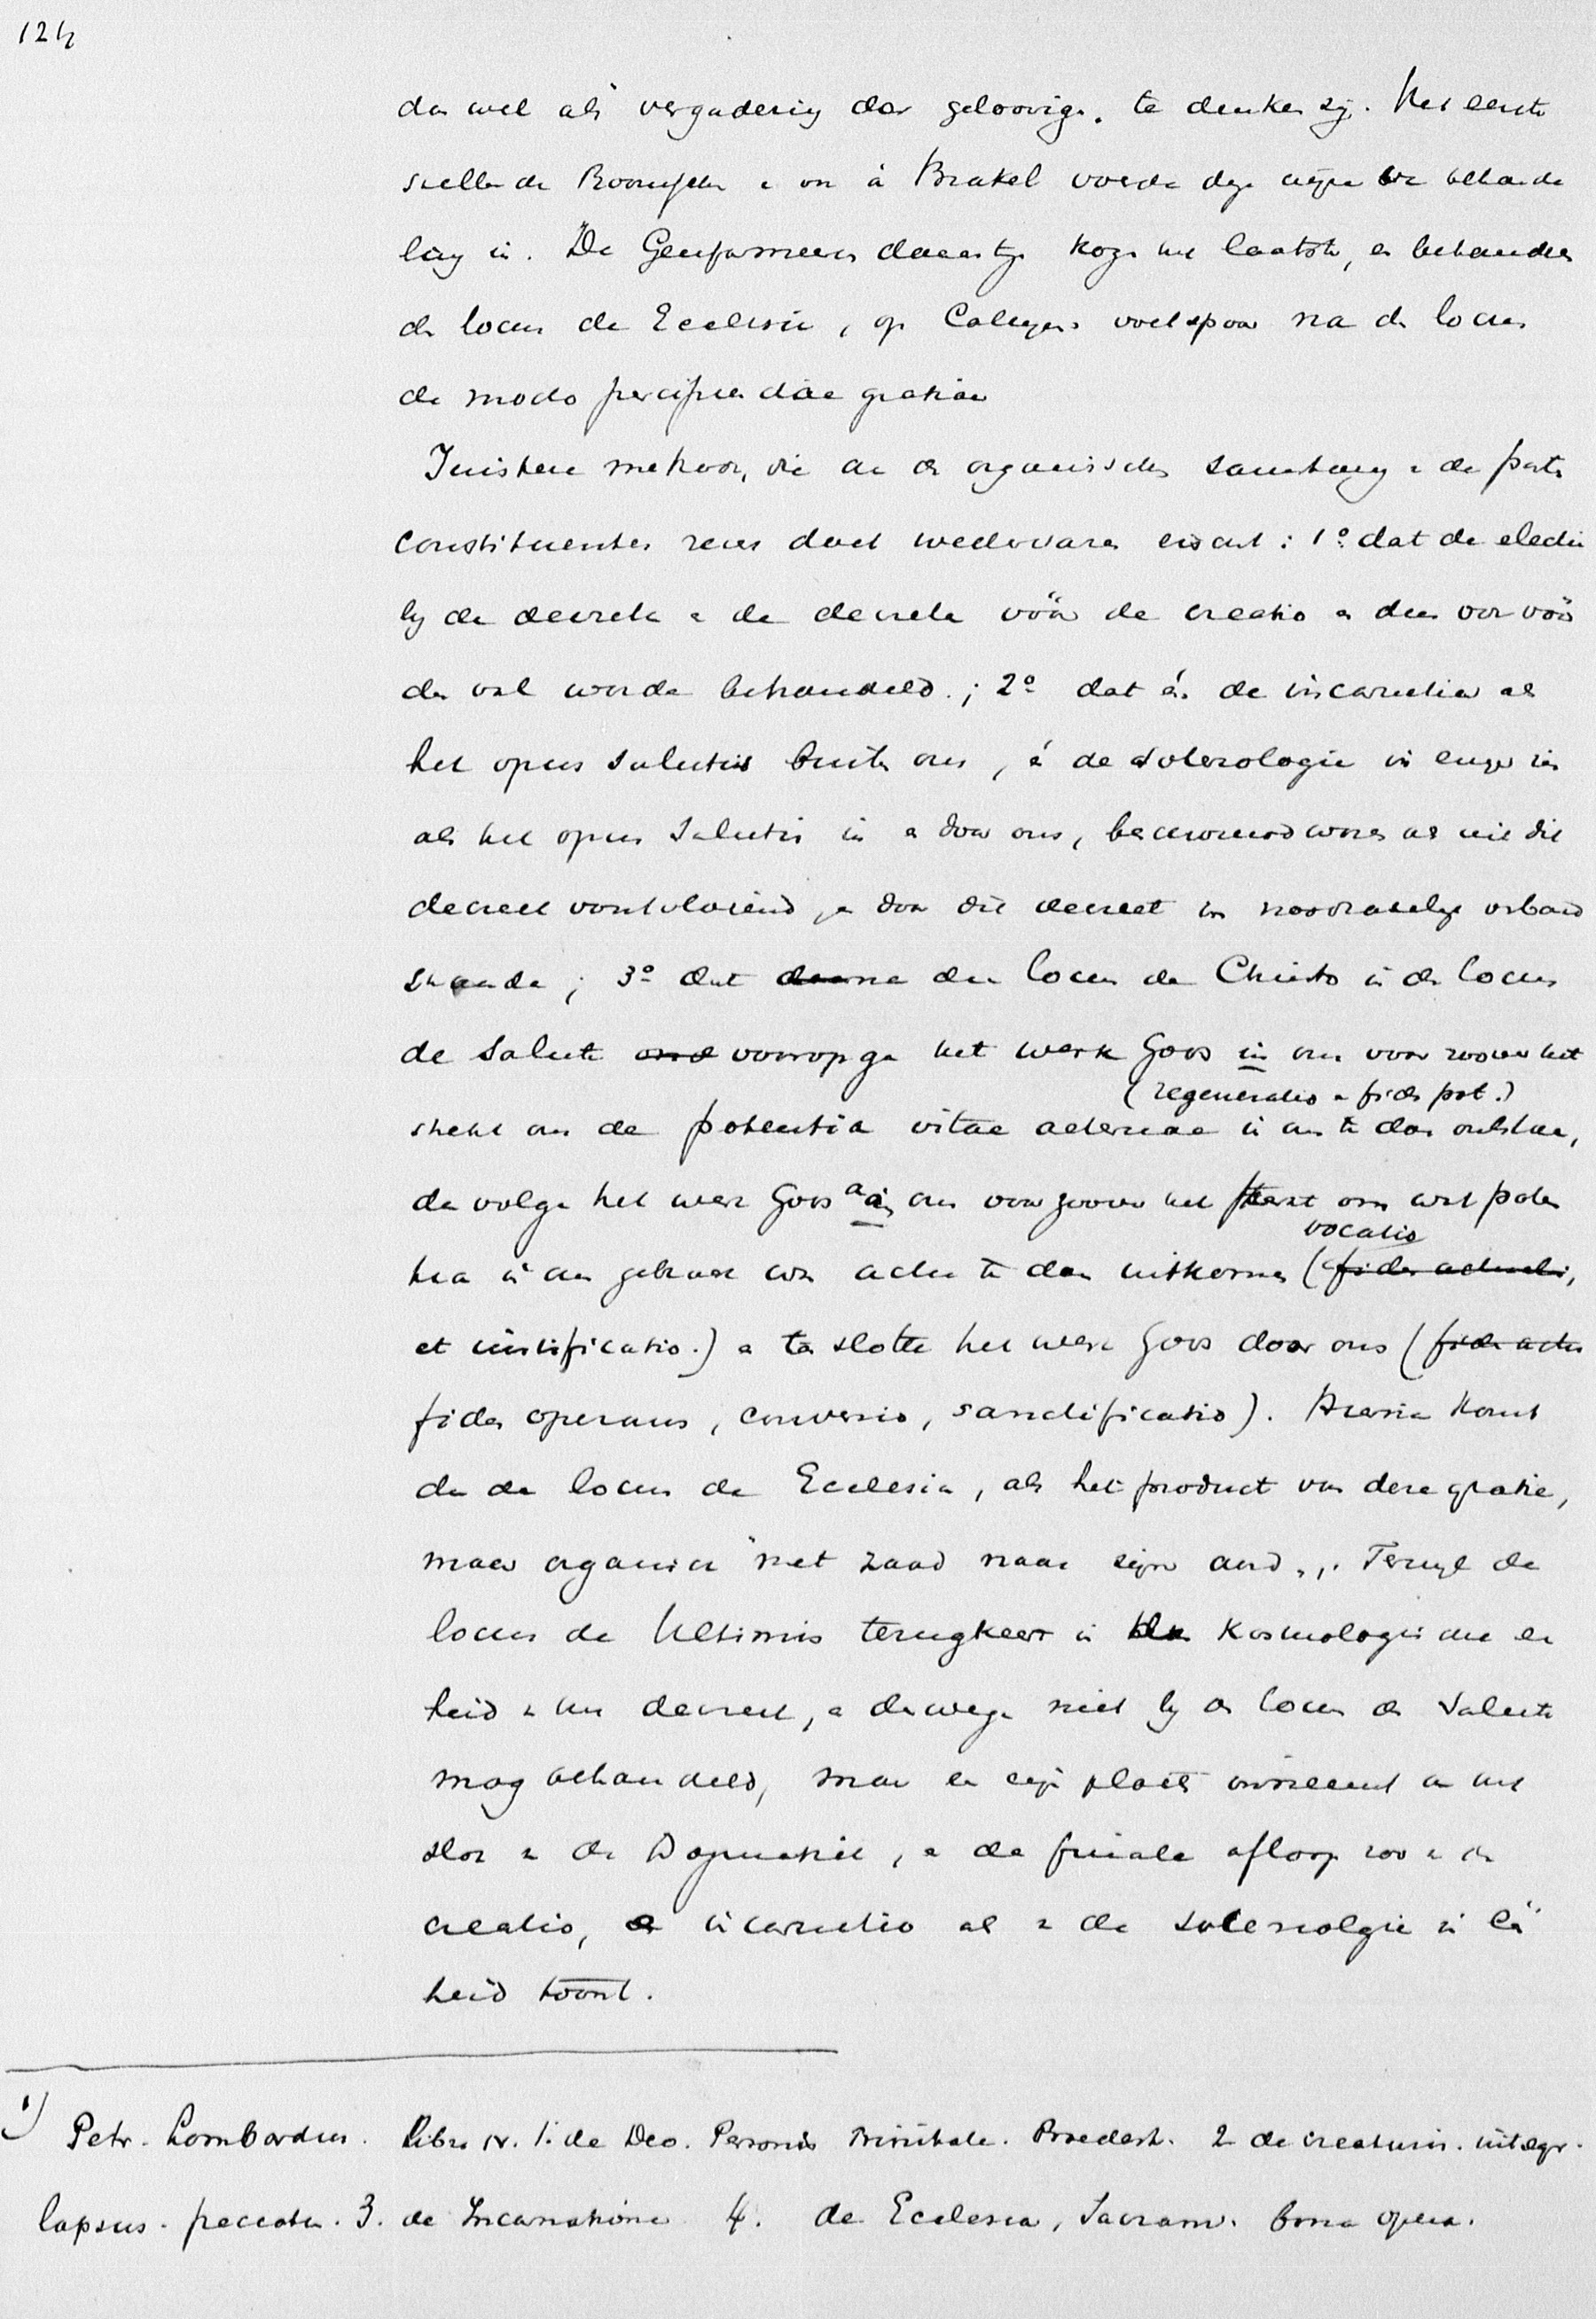 124
dan wel als vergadering der geloovigen te denken zij. Het eerste
stellen de Roomschen en ook à Brakel voerde deze wijze van behande
ling in. De Gereformeerden daarentegen kozen het laatste, en behandelen
den locus de Ecclesia, op Calvijns voetspoor na den locus
de modo percipiendae gratiae
Juistere methode, die aan den organischen samenhang en de partes
constituentes recht doet wedervaren eischt: 1º. dat de electie
bij de decreta en de decreta vóór de creatio en dus ook vóór
den val worde behandeld.; 2º dat én de incarnatie als
het opus salutis buiten ons, én de soteriologie in enger zin
als het opus salutis in en door ons, beschouwd worden als uit dit
decreet voortvloeiend, en door dit decreet in noodzakelijk verband
staande; 3º dat den locus de Christo in den locus
de Salute voorop ga het werk Gods in ons voor zoover het
(regeneratio en fides pot.)
strekt om de potentia vitae aeternae in ons te doen ontstaan,
dan volge het werk Gods aan ons voor zoover het strekt om wat poten
tia in ons gelegd was actu te doen uitkomen (vocatio
et iustificatio.) en ten slotte het werk Gods door ons (
fides operans, conversio, sanctificatio). Hierna komt
dan de locus de Ecclesia, als het product van deze gratie,
maar organisch "met zaad naar zijn aard". Terwijl de
locus de Ultimis terugkeert in de Kosmologie en de een
heid van het decreet, en derwege niet bij den locus de Salute
mag behandeld, maar een eigen plaats inneemt aan het
slot van de Dogmatiek, en de finale afloop zoo van de
creatio, incarnatio als van de soteriologie in één
heid toont.
1) Petr. Lombardus. Libri IV. 1. de Deo. Personis Trinitate. Praedest. 2 de creaturis. integr.
lapsus. peccatum. 3. de Incarnatione 4. de Ecclesia, Sacram. bona opera.